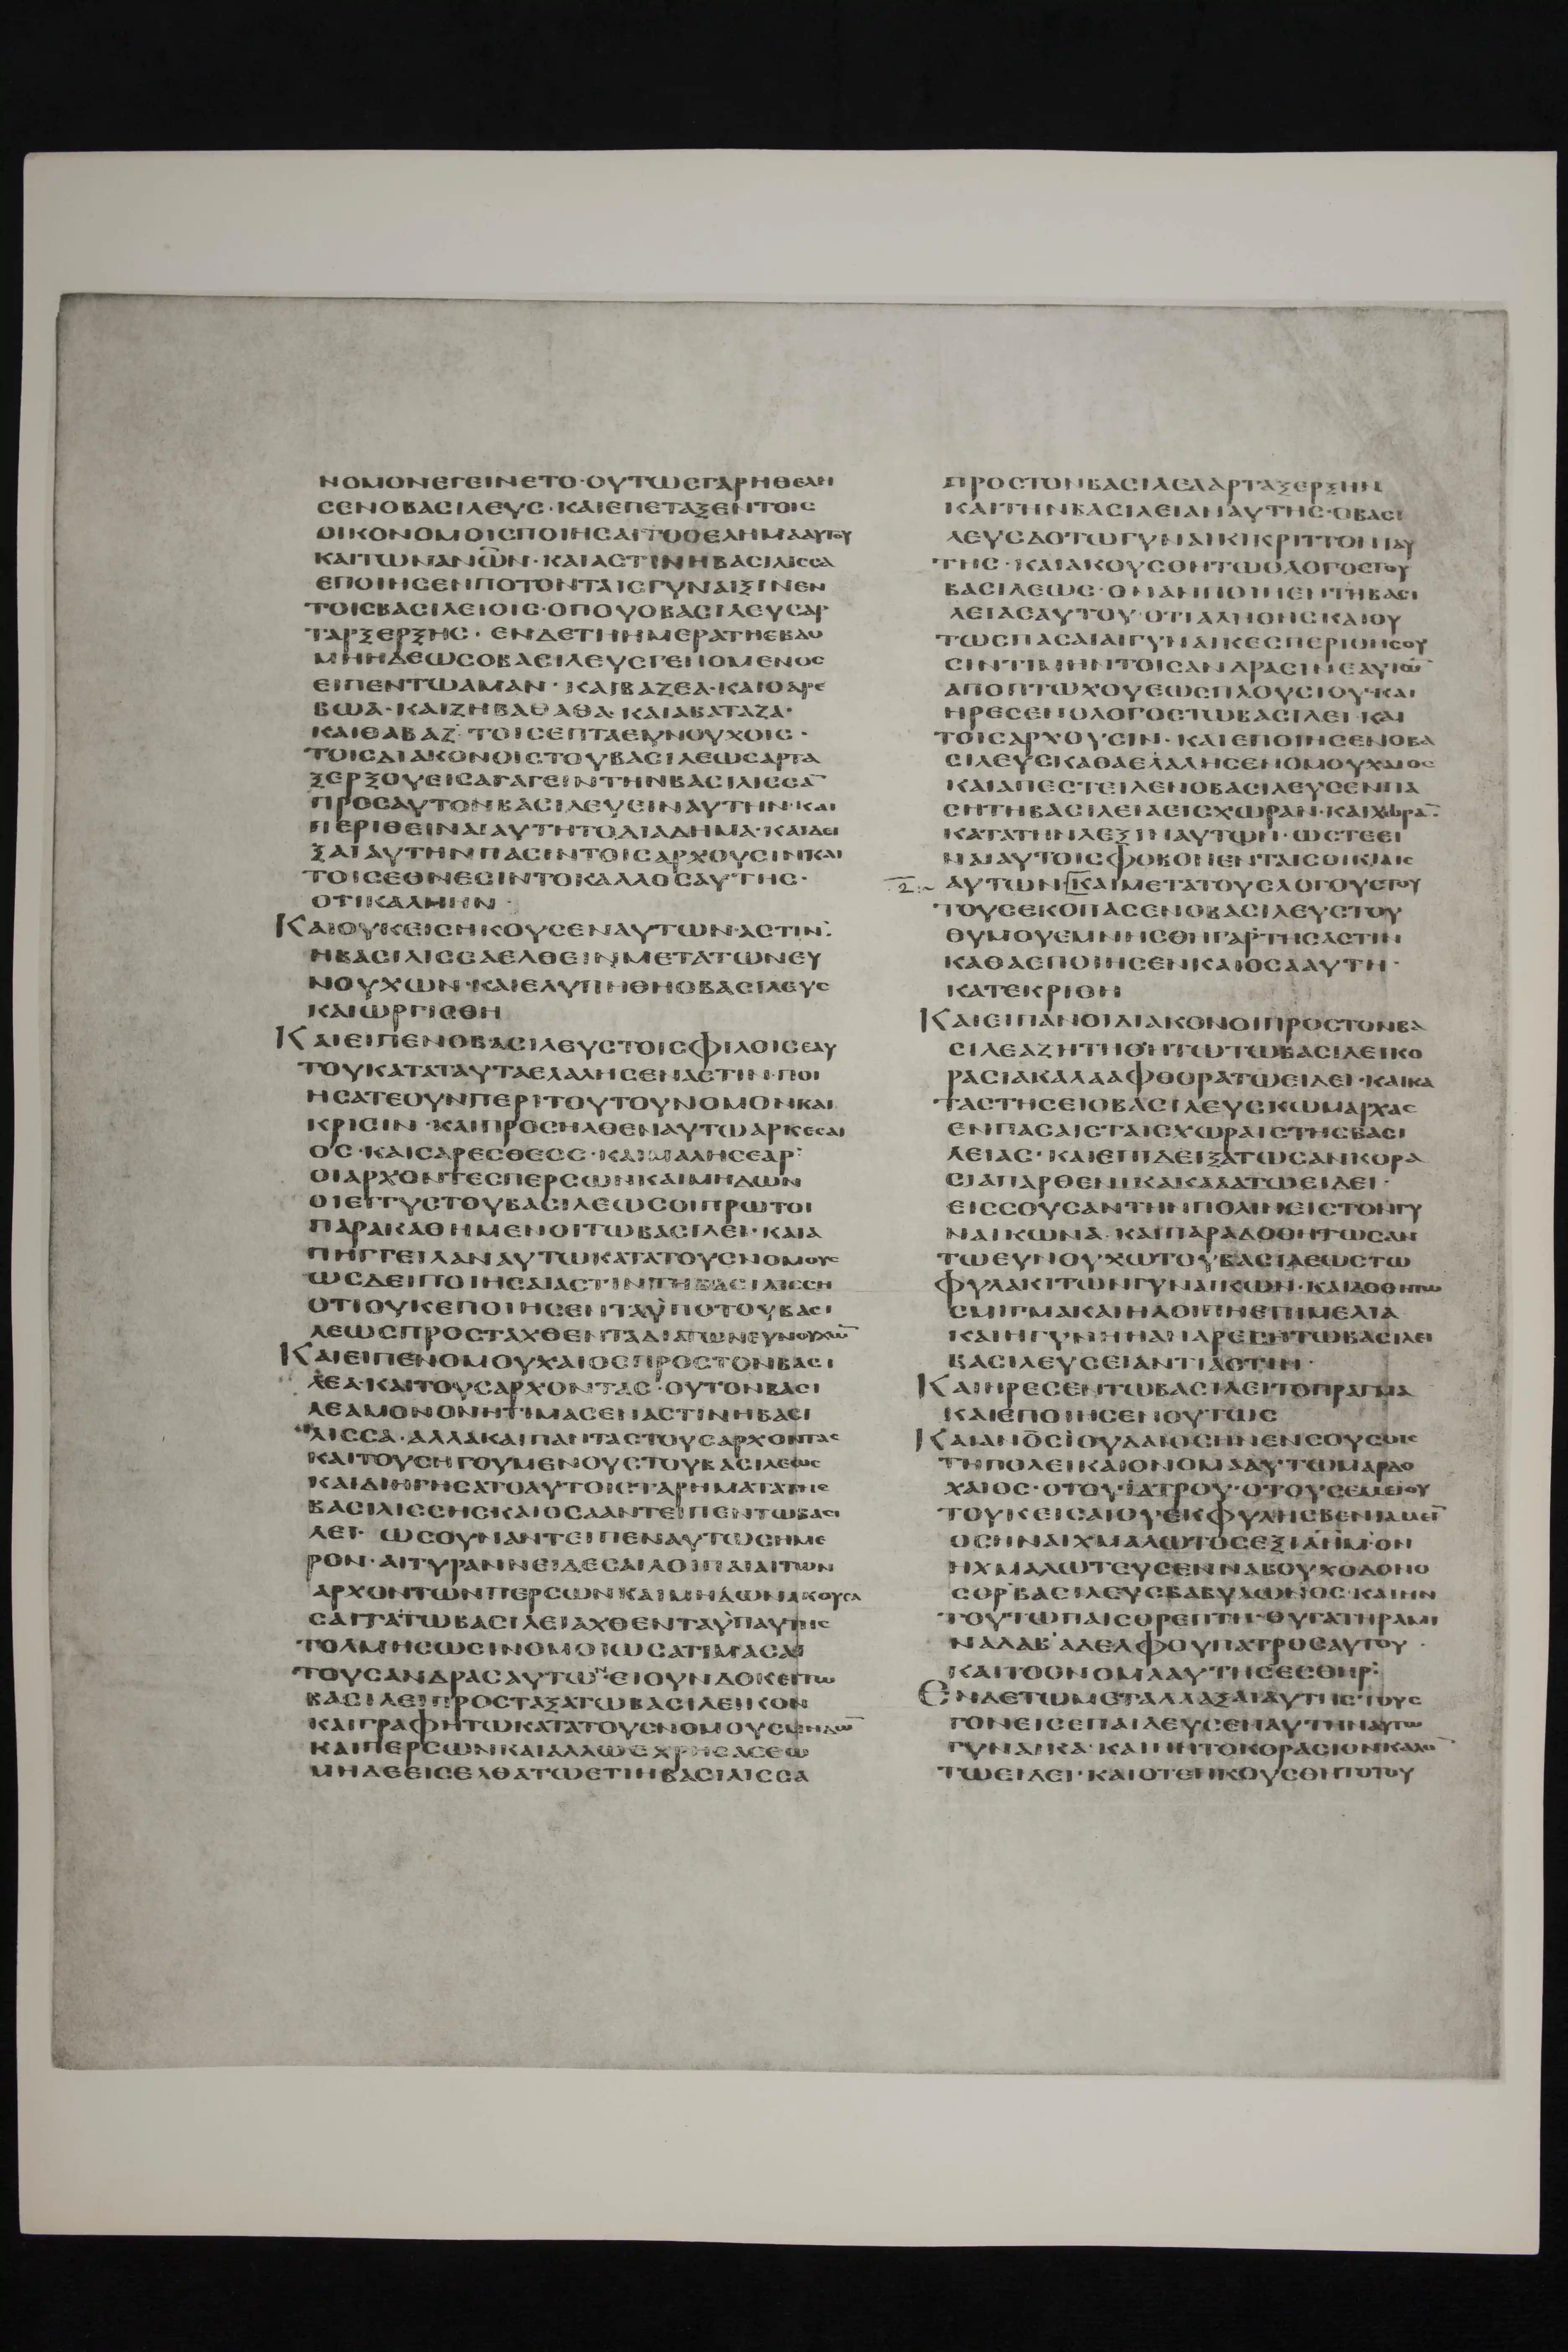 ΝΟΜΟΝΕΓΕΙΝΕΤΟ·ΟΥΤΩϹΓΑΡΗΘΕΛΗ
ϹΕΝΟΒΑϹΙΛΕΥϹ·ΚΑΙΕΠΕΤΑΞΕΝΤΟΙϹ
ΟΙΚΟΝΟΜΟΙϹΠΟΙΗϹΑΙΤΟΘΕΛΗΜΑΑΥΤΟΥ
ΚΑΙΤΩΝΑΝΩ̅Ν·ΚΑΙΑϹΤΙΝΗΒΑϹΙΛΙϹϹΑ
ΕΠΟΙΗϹΕΝΠΟΤΟΝΤΑΙϹΓΥΝΑΙΞΙΝΕΝ
ΤΟΙϹΒΑϹΙΛΕΙΟΙϹ·ΟΠΟΥΟΒΑϹΙΛΕΥϹΑΡ
ΤΑΡΞΕΡΞΗϹ·ΕΝΔΕΤΗΗΜΕΡΑΤΗΕΒΔΟ
ΜΗΗΔΕΩϹΟΒΑϹΙΛΕΥϹΓΕΝΟΜΕΝΟϹ
ΕΙΠΕΝΤΩΑΜΑΝ·ΚΑΙΒΑΖΕΑ·ΚΑΙΘΑΡΕ
ΒΩΑ·ΚΑΙΖΗΒΑΘΑΘΑ·ΚΑΙΑΒΑΤΑΖΑ·
ΚΑΙΘΑΒΑΖ·ΤΟΙϹΕΠΤΑΕΥΝΟΥΧΟΙϹ·
ΤΟΙϹΔΙΑΚΟΝΟΙϹΤΟΥΒΑϹΙΛΕΩϹΑΡΤΑ
ΞΕΡΞΟΥΕΙϹΑΓΑΓΕΙΝΤΗΝΒΑϹΙΛΙϹϹΑ̅
ΠΡΟϹΑΥΤΟΝΒΑϹΙΛΕΥΕΙΝΑΥΤΗΝ·ΚΑΙ
ΠΕΡΙΘΕΙΝΑΙΑΥΤΗΤΟΔΙΑΔΗΜΑ·ΚΑΙΔΕΙ
ΞΑΙΑΥΤΗΝΠΑϹΙΝΤΟΙϹΑΡΧΟΥϹΙΝΚΑΙ
ΤΟΙϹΕΘΝΕϹΙΝΤΟΚΑΛΛΟϹΑΥΤΗϹ·
ΟΤΙΚΑΛΗΗΝ·
ΚΑΙΟΥΚΕΙϹΗΚΟΥϹΕΝΑΥΤΩΝ·ΑϹΤΙΝ·
ΗΒΑϹΙΛΙϹϹΑΕΛΘΕΙΝΜΕΤΑΤΩΝΕΥ
ΝΟΥΧΩΝ·ΚΑΙΕΛΥΠΗΘΗΟΒΑϹΙΛΕΥϹ
ΚΑΙΩΡΓΙϹΘΗ
ΚΑΙΕΙΠΕΝΟΒΑϹΙΛΕΥϹΤΟΙϹΦΙΛΟΙϹΕΑΥ
ΤΟΥΚΑΤΑΤΑΥΤΑΕΛΑΛΗϹΕΝΑϹΤΙΝ·ΠΟΙ
ΗϹΑΤΕΟΥΝΠΕΡΙΤΟΥΤΟΥΝΟΜΟΝΚΑΙ
ΚΡΙϹΙΝ·ΚΑΙΠΡΟϹΗΛΘΕΝΑΥΤΩΑΡΚΕϹΑΙ
ΟϹ·ΚΑΙϹΑΡΕϹΘΕϹϹ·ΚΑΙΜΑΛΗϹΕΑΡ·
ΟΙΑΡΧΟΝΤΕϹΠΕΡϹΩΝΚΑΙΜΗΔΩΝ
ΟΙΕΓΓΥϹΤΟΥΒΑϹΙΛΕΩϹΟΙΠΡΩΤΟΙ
ΠΑΡΑΚΑΘΗΜΕΝΟΙΤΩΒΑϹΙΛΕΙ·ΚΑΙΑ
ΠΗΓΓΕΙΛΑΝΑΥΤΩΚΑΤΑΤΟΥϹΝΟΜΟΥϹ
ΩϹΔΕΙΠΟΙΗϹΑΙΑϹΤΙΝΤΗΒΑϹΙΛΙϹϹΗ
ΟΤΙΟΥΚΕΠΟΙΗϹΕΝΤΑΫΠΟΤΟΥΒΑϹΙ
ΛΕΩϹΠΡΟϹΤΑΧΘΕΝΤΑΔΙΑΤΩΝΕΥΝΟΥΧΩ̅
ΚΑΙΕΙΠΕΝΟΜΟΥΧΑΙΟϹΠΡΟϹΤΟΝΒΑϹΙ
ΛΕΑ·ΚΑΙΤΟΥϹΑΡΧΟΝΤΑϹ·ΟΥΤΟΝΒΑϹΙ
ΛΕΑΜΟΝΟΝΗΤΙΜΑϹΕΝΑϹΤΙΝΗΒΑϹΙ
ΛΙϹϹΑ·ΑΛΛΑΚΑΙΠΑΝΤΑϹΤΟΥϹΑΡΧΟΝΤΑϹ
ΚΑΙΤΟΥϹΗΓΟΥΜΕΝΟΥϹΤΟΥΒΑϹΙΛΕΩϹ
ΚΑΙΔΙΗΓΗϹΑΤΟΑΥΤΟΙϹΤΑΡΗΜΑΤΑΤΗϹ
ΒΑϹΙΛΙϹϹΗϹΚΑΙΟϹΑΑΝΤΕΙΠΕΝΤΩΒΑϹΙ
ΛΕΙ· ΩϹΟΥΝΑΝΤΕΙΠΕΝΑΥΤΩϹΗΜΕ
ΡΟΝ·ΑΙΤΥΡΑΝΝΕΙΔΕϹΑΙΛΟΙΠΑΙΑΙΤΩΝ
ΑΡΧΟΝΤΩΝΠΕΡϹΩΝΚΑΙΜΗΔΩΝΑΚΟΥϹΑ
ϹΑΙΤΑΤΩΒΑϹΙΛΕΙΛΧΘΕΝΤΑΫΠΑΥΤΗϹ
ΤΟΛΜΗϹΩϹΙΝΟΜΟΙΩϹΑΤΙΜΑϹΑΙ
ΤΟΥϹΑΝΔΡΑϹΑΥΤΩΝ·ΕΙΟΥΝΔΟΚΕΙΤΩ
ΒΑϹΙΛΕΙΠΡΟϹΤΑΞΑΤΩΒΑϹΙΛΕΙΚΟΝ
ΚΑΙΓΡΑΦΗΤΩΚΑΤΑΤΟΥϹΝΟΜΟΥϹΜΗΔΩ̅
ΚΑΙΠΕΡϹΩΝΚΑΙΑΛΛΩϹΧΡΗϹΑϹΘΩ
ΜΗΔΕΕΙϹΕΛΘΑΤΩΕΤΙΗΒΑϹΙΛΙϹϹΑ
ΠΡΟϹΤΟΝΒΑϹΙΛΕΑΑΡΤΑΞΕΡΞΗΝ
ΚΑΙΤΗΝΒΑϹΙΛΕΙΑΝΑΥΤΗϹ·ΟΒΑϹΙ
ΛΕΥϹΔΟΤΩΓΥΝΑΙΚΙΚΡΙΤΤΟΝΙΑΥ
ΤΗϹ·ΚΑΙΑΚΟΥϹΘΗΤΩΟΛΟΓΟϹΤΟΥ
ΒΑϹΙΛΕΩϹ·ΟΝΑΝΠΟΙΗΕΝΤΗΒΑϹΙ
ΛΕΙΑϹΑΥΤΟΥ·ΟΤΙΑΛΗΘΗϹΚΑΙΟΥ
ΤΩϹΠΑϹΑΙΑΙΓΥΝΑΙΚΕϹΠΕΡΙΘΗϹΟΥ
ϹΙΝΤΙΜΗΝΤΟΙϹΑΝΔΡΑϹΙΝΕΑΥΤΩ̅
ΑΠΟΠΤΩΧΟΥΕΩϹΠΛΟΥϹΙΟΥ·ΚΑΙ
ΗΡΕϹΕΝΟΛΟΓΟϹΤΩΒΑϹΙΛΕΙ·ΚΑΙ
ΤΟΙϹΑΡΧΟΥϹΙΝ·ΚΑΙΕΠΟΙΗϹΕΝΟΒΑ
ϹΙΛΕΥϹΚΑΘΑΕΛΑΛΗϹΕΝΟΜΟΥΧΑΙΟϹ
ΚΑΙΑΠΕϹΤΕΙΛΕΝΟΒΑϹΙΛΕΥϹΕΝΠΑ
ϹΗΤΗΒΑϹΙΛΕΙΑΕΙϹΧΩΡΑΝ·ΚΑΙΧΩΡΑ̅·
ΚΑΤΑΤΗΝΛΕΞΙΝΑΥΤΩΝ·ΩϹΤΕΕΙ
ΝΑΙΑΥΤΟΙϹΦΟΒΟΝΕΝΤΑΙϹΟΙΚΙΑΙϹ
ΑΥΤΩΝΚΑΙΜΕΤΑΤΟΥϹΛΟΓΟΥϹΤΟΥ
ΤΟΥϹΕΚΟΠΑϹΕΝΟΒΑϹΙΛΕΥϹΤΟΥ
ΘΥΜΟΥΕΜΝΗϹΘΗΓΑΡΤΗϹΑϹΤΙΝ
ΚΑΘΑΕΠΟΙΗϹΕΝΚΑΙΟϹΑΑΥΤΗ·
ΚΑΤΕΚΡΙΘΗ
ΚΑΙΕΙΠΑΝΟΙΔΙΑΚΟΝΟΙΠΡΟϹΤΟΝΒΑ
ϹΙΛΕΑΖΗΤΗΘΗΤΩΤΩΒΑϹΙΛΕΙΚΟ
ΡΑϹΙΑΚΑΛΑΑΦΘΟΡΑΤΩΕΙΔΕΙ·ΚΑΙΚΑ
ΤΑϹΤΗϹΕΙΟΒΑϹΙΛΕΥϹΚΩΜΑΡΧΑϹ
ΕΝΠΑϹΑΙϹΤΑΙϹΧΩΡΑΙϹΤΗϹΒΑϹΙ
ΛΕΙΑϹ·ΚΑΙΕΠΙΔΕΙΞΑΤΩϹΑΝΚΟΡΑ
ϹΙΑΠΑΡΘΕΝΙΚΑΚΑΛΑΤΩΕΙΔΕΙ·
ΕΙϹϹΟΥϹΑΝΤΗΝΠΟΛΙΝΕΙϹΤΟΝΓΥ
ΝΑΙΚΩΝΑ·ΚΑΙΠΑΡΑΔΟΘΗΤΩϹΑΝ
ΤΩΕΥΝΟΥΧΩΤΟΥΒΑϹΙΛΕΩϹΤΩ
ΦΥΛΑΚΙΤΩΝΓΥΝΑΙΚΩΝ·ΚΑΙΔΟΘΗΤΩ
ϹΜΙΓΜΑΚΑΙΗΛΟΙΠΗΕΠΙΜΕΛΙΑ
ΚΑΙΗΓΥΝΗΗΑΝΑΡΕϹΗΤΩΒΑϹΙΛΕΙ
ΒΑϹΙΛΕΥϹΕΙΑΝΤΙΑϹΤΙΝ·
ΚΑΙΗΡΕϹΕΝΤΩΒΑϹΙΛΕΙΤΟΠΡΑΓΜΑ
ΚΑΙΕΠΟΙΗϹΕΝΟΥΤΩϹ
ΚΑΙΑΝΟ̅ϹΪΟΥΔΑΙΟϹΗΝΕΝϹΟΥϹΟΙϹ
ΤΗΠΟΛΕΙΚΑΙΟΝΟΜΑΑΥΤΩΜΑΡΔΟ
ΧΑΙΟϹ·ΟΤΟΥΪΑΤΡΟΥ·ΟΤΟΥϹΕΜΕΙΟΥ
ΤΟΥΚΕΙϹΑΙΟΥΕΚΦΥΛΗϹΒΕΝΙΑΜΕΙ̅
ΟϹΗΝΑΙΧΜΑΛΩΤΟϹΕΞΙΛΗΜ·ΟΝ
ΗΧΜΑΛΩΤΕΥϹΕΝΝΑΒΟΥΧΟΔΟΝΟ
ϹΟΡΒΑϹΙΛΕΥϹΒΑΒΥΛΩΝΟϹ·ΚΑΙΗΝ
ΤΟΥΤΩΠΑΙϹΘΡΕΠΤΗ·ΘΥΓΑΤΗΡΑΜΙ
ΝΑΔΑΒΑΔΕΛΦΟΥΠΑΤΡΟϹΑΥΤΟΥ·
ΚΑΙΤΟΟΝΟΜΑΑΥΤΗϹΕϹΘΗΡ·
ΕΝΔΕΤΩΜΕΤΑΛΛΑΞΑΙΑΥΤΗϹΤΟΥϹ
ΓΟΝΕΙϹΕΠΑΙΔΕΥϹΕΝΑΥΤΗΝΑΥΤΩ
ΓΥΝΑΙΚΑ·ΚΑΙΗΝΤΟΚΟΡΑϹΙΟΝΚΑΛΟ̅
ΤΩΕΙΔΕΙ·ΚΑΙΟΤΕΗΚΟΥϹΘΗΤΟΤΟΥ